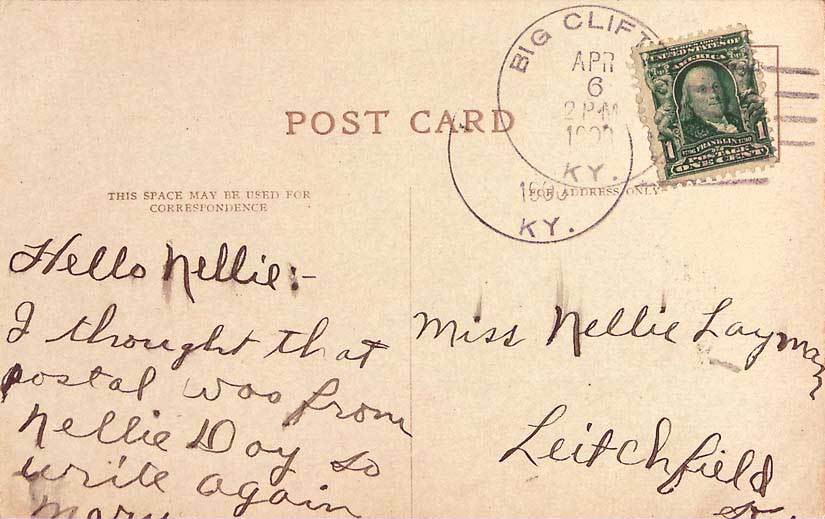 BIG CLIFT
APR
6
2 PM
KY.
KY.
UNITED STATES OF
AMERICA
1 FRANKLIN 1
POSTAGE
ONE CENT
POST CARD
THIS SPACE MAY BE USED FOR
CORRESPONDENCE
FOR ADDRESS ONLY
Hello Nellie:-
I thought that
postal was from
Nellie Day so
write again
Mary
Miss Nellie Layman
Leitchfield